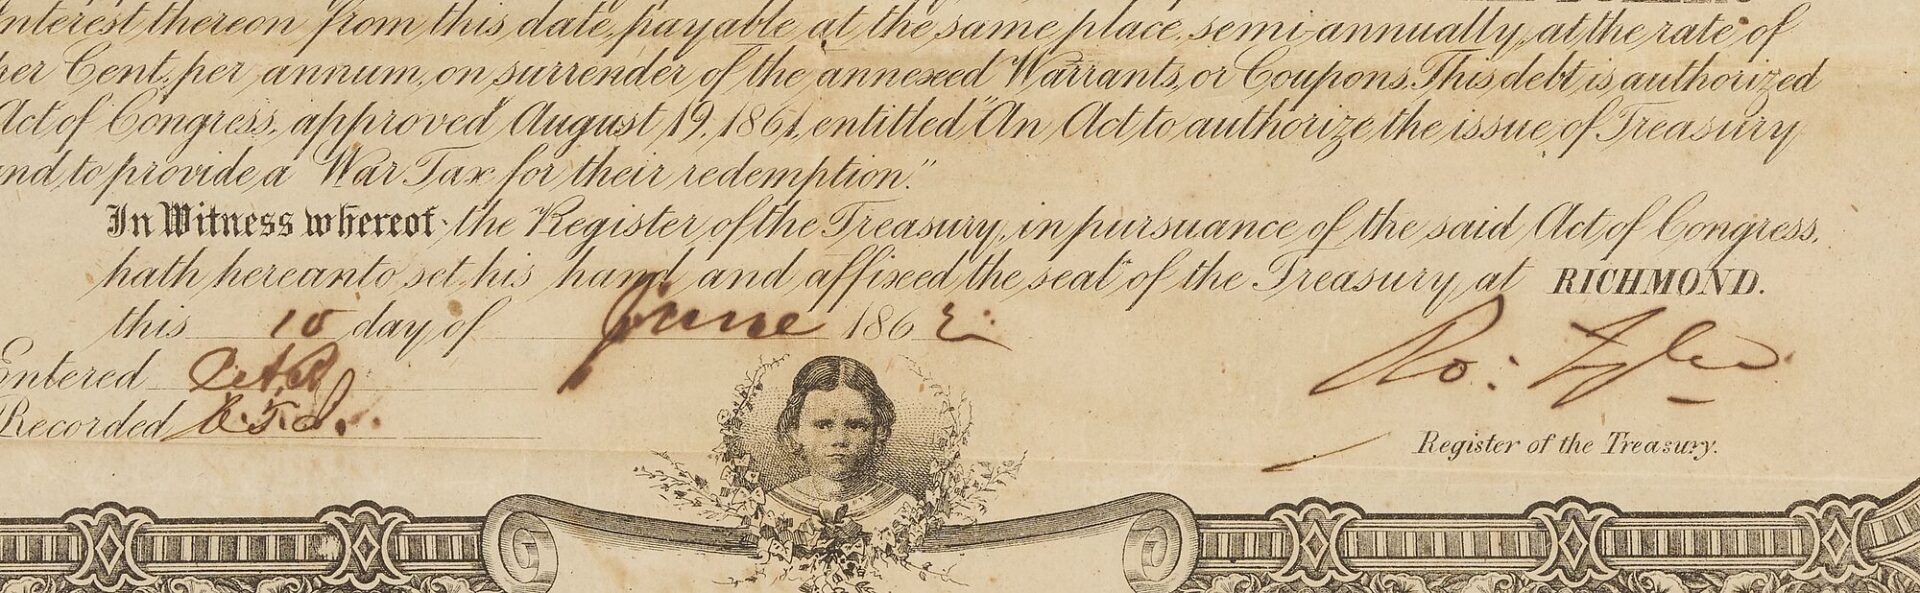 Interest thereon from this date, payable at the same place, semi-annually, at the rate of
per Cent. per annum, on surrender of the annexed Warrants, or Coupons. This debt is authorized
Act of Congress, approved August 19, 1861, entitled "An Act to authorize the issue of Treasury
and to provide a War Tax for their redemption."
In Witness whereof the Register of the Treasury, in pursuance of the said Act of Congress,
hath hereunto set his hand and affixed the seal of the Treasury, at RICHMOND.
this 10 day of June 1862
Entered
Recorded
Ro: Tyler
Register of the Treasury.